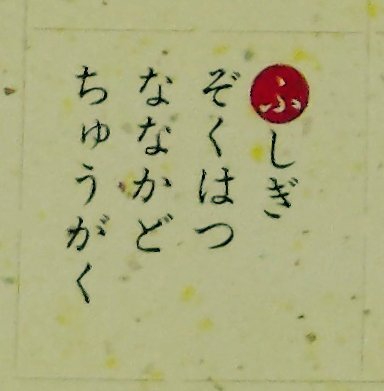 ふしぎ
ぞくはつ
ななかど
ちゅうがく